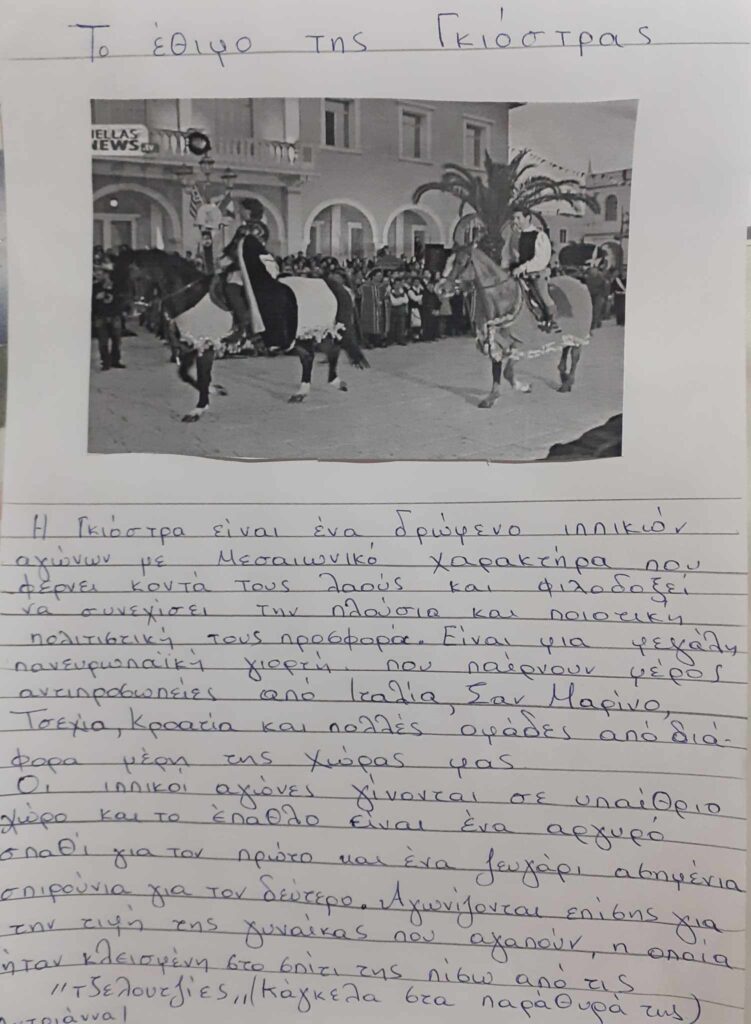 Το έθιμο της Γκιόστρας
HELLAS
NEWS
Η Γκιόστρα είναι ένα δρώμενο ιππικών
αγώνων με Μεσαιωνικό χαρακτήρα που
φέρνει κοντά τους λαούς και φιλοδοξεί
να συνεχίσει την πλούσια και ποιοτική
πολιτιστική τους προσφορά. Είναι μια μεγάλη
πανευρωπαϊκή γιορτή που παίρνουν μέρος
αντιπροσωπείες από Ιταλία, Σαν Μαρίνο,
Τσεχία, Κροατία και πολλές ομάδες από διά-
φορα μέρη της χώρας μας
Οι ιππικοί αγώνες γίνονται σε υπαίθριο
χώρο και το έπαθλο είναι ένα αργυρό
σπαθί για τον πρώτο και ένα ζευγάρι ασημένια
σπιρούνια για τον δεύτερο. Αγωνίζονται επίσης για
την τιμή της γυναίκας που αγαπούν, η οποία
ήταν κλεισμένη στο σπίτι της πίσω από τις
"τζελουτζίες" (κάγκελα στα παράθυρά της)